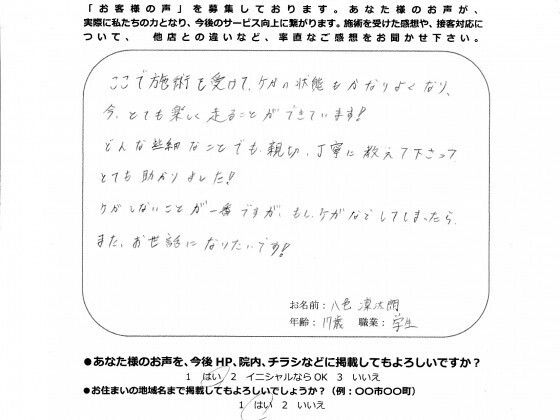 「お客様の声」を募集しております。あなた様のお声が、
実際に私たちの力となり、今後のサービス向上に繋がります。施術を受けた感想や、接客対応に
ついて、 他店との違いなど、率直なご感想をお聞かせ下さい。
ここで施術を受けて、ケガの状態もかなりよくなり、
今、とても楽しく走ることができています!
どんな些細なことでも、親切、丁寧に教えて下さって
とても助かりました!
ケガしないことが一番ですが、もし、ケガなどしてしまったら、
また、お世話になりたいです!
お名前:八色
年齢:17歳 職業:学生
●あなた様のお声を、今後HP、院内、チラシなどに掲載してもよろしいですか?
1 はい 2 イニシャルならOK 3 いいえ
●お住まいの地域名まで掲載してもよろしいでしょうか?(例:〇〇市〇〇町)
1 はい 2 いいえ